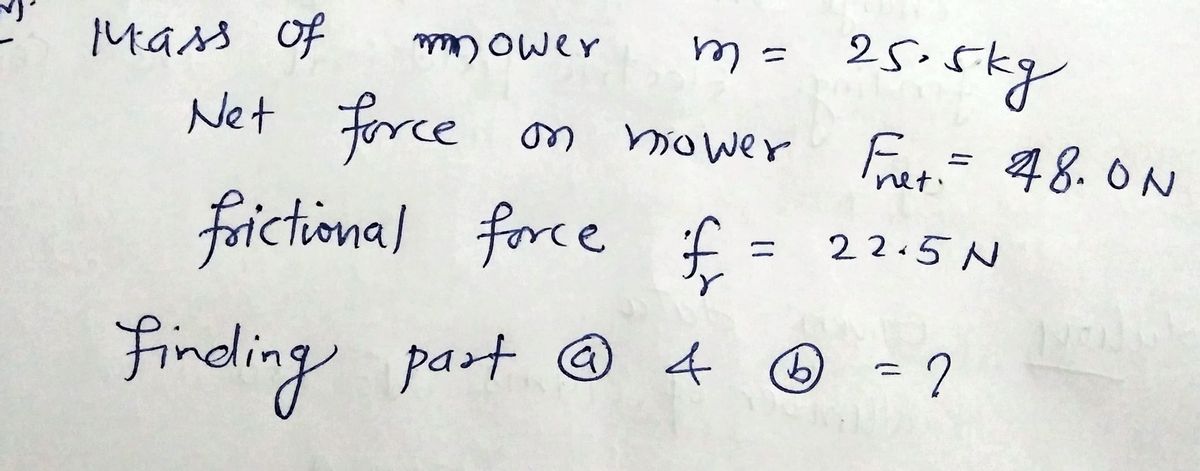 Mass of mower m = 25.5kg
Net force on mower Fnet. = 48.0N
frictional force fr = 22.5 N
finding part ⓐ & ⓑ = ?